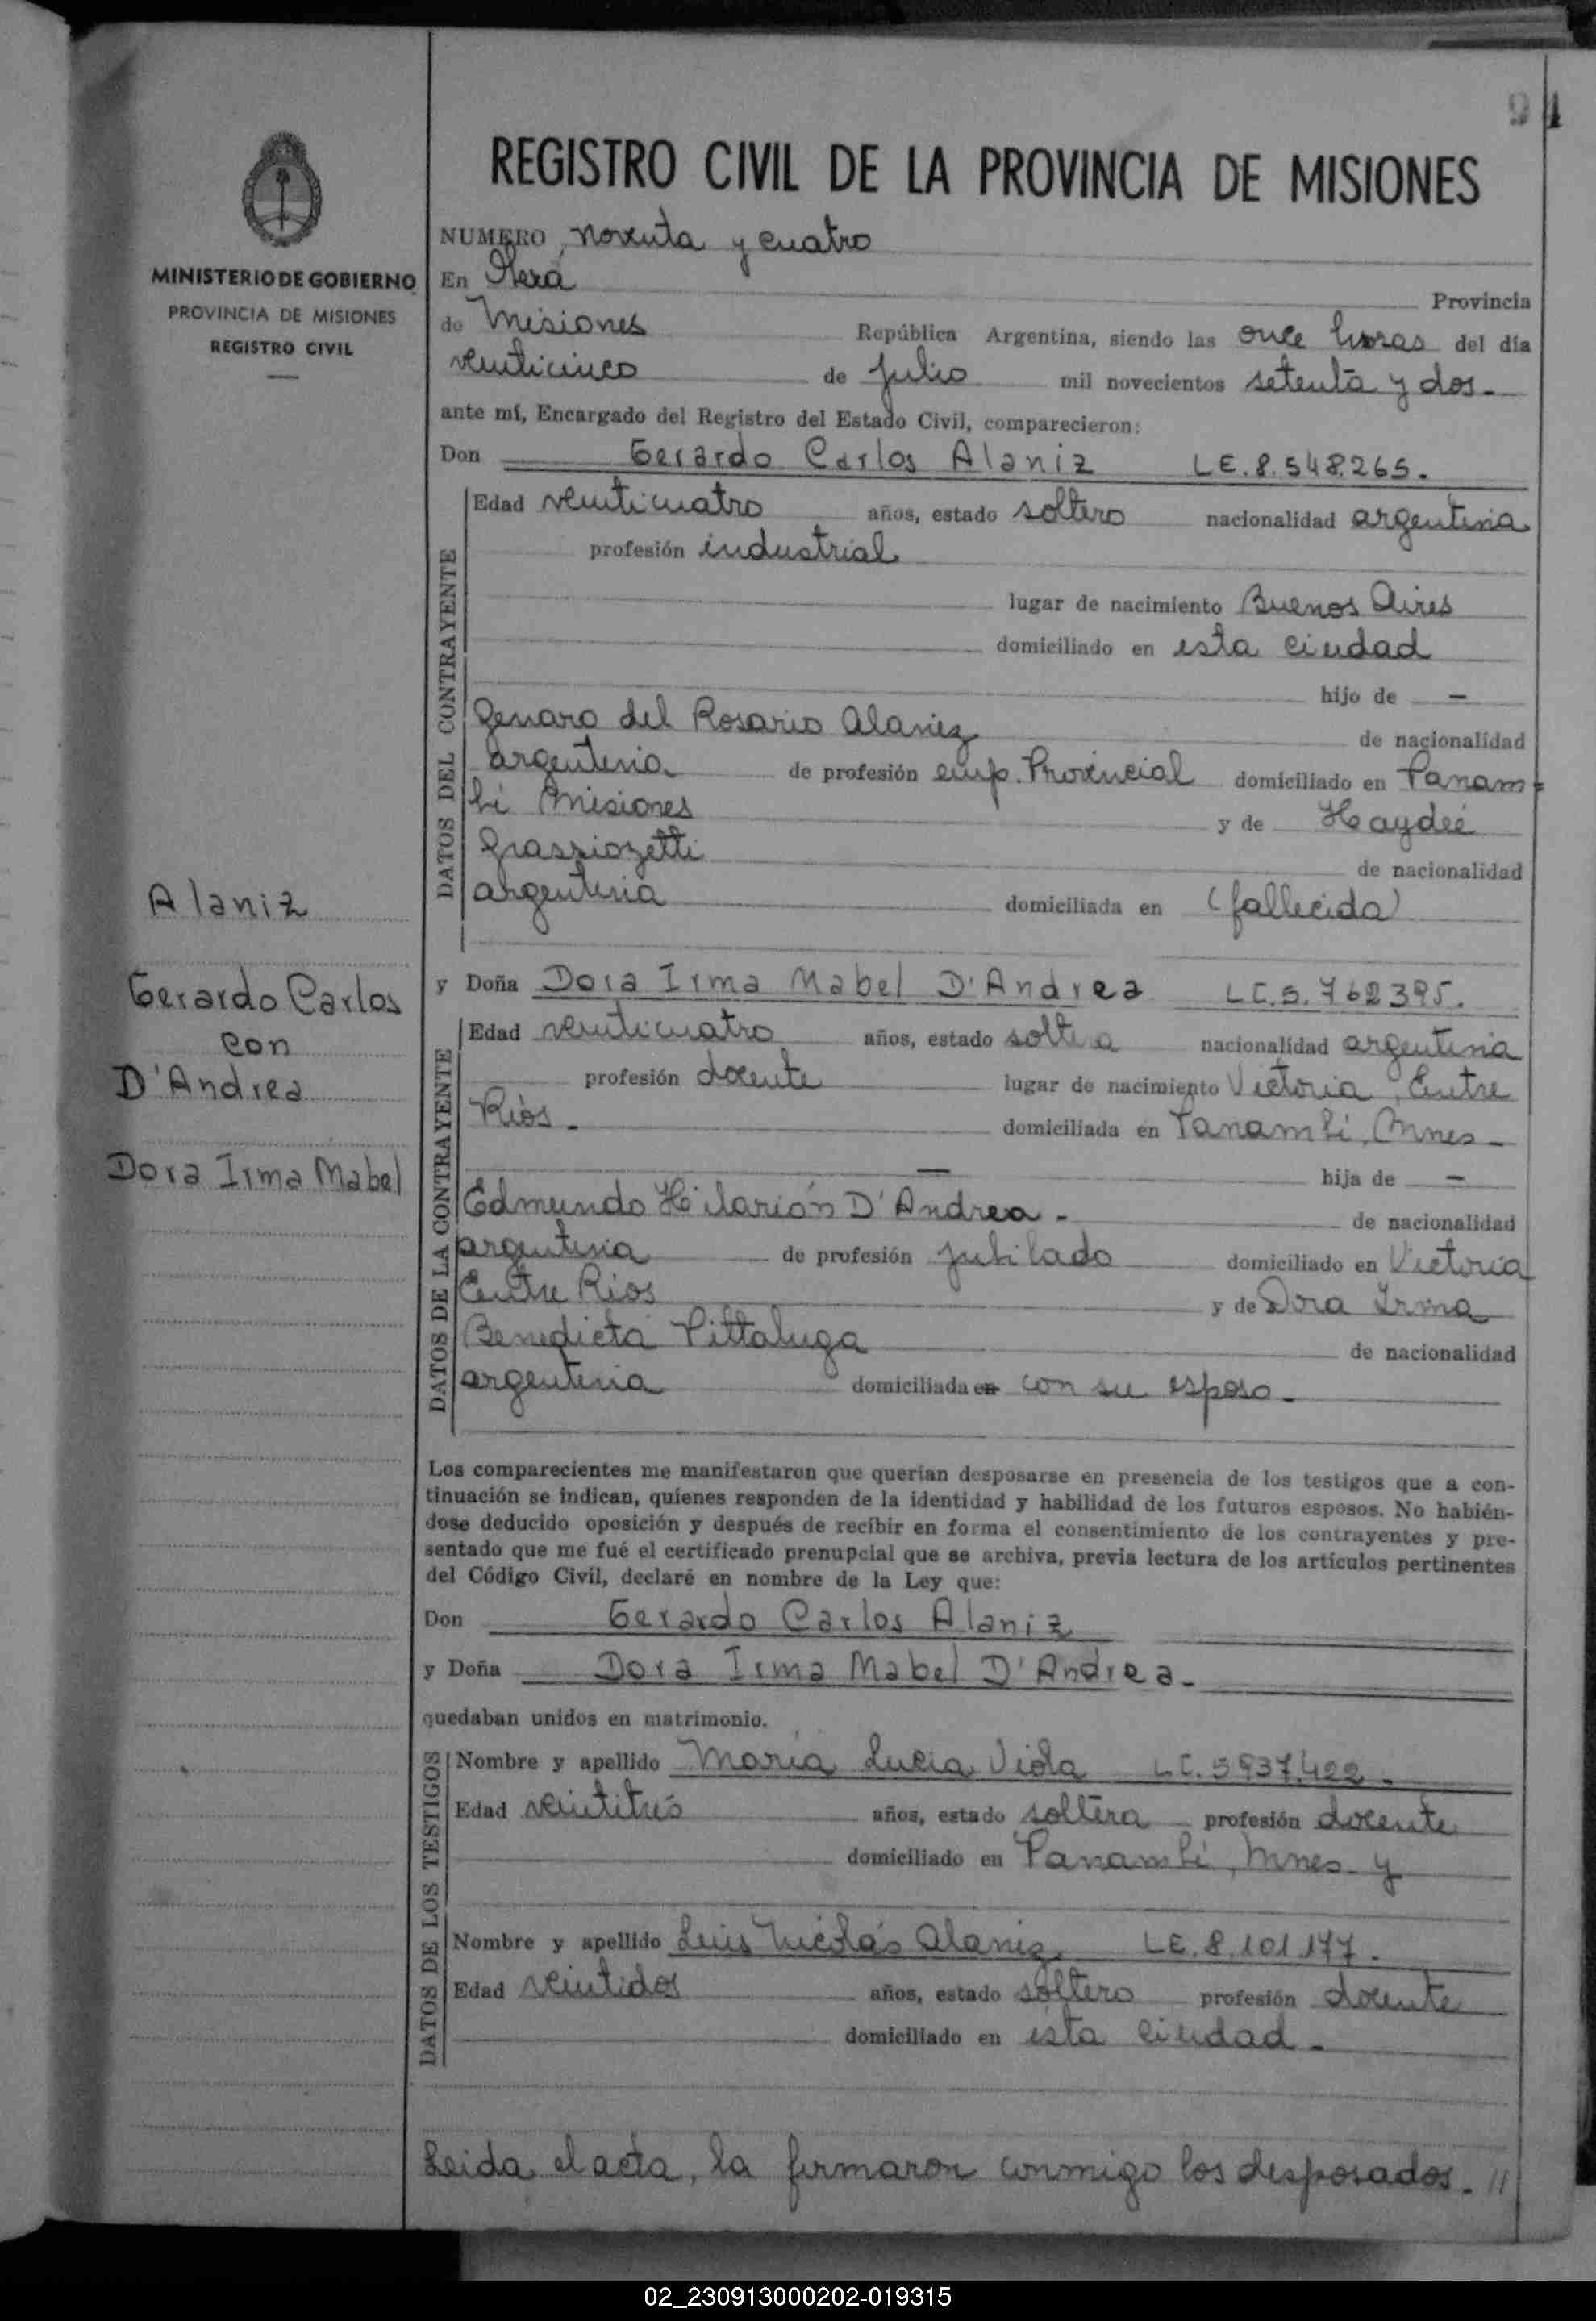 94
MINISTERIO DE GOBIERNO
PROVINCIA DE MISIONES
REGISTRO CIVIL
Alaniz
Gerardo Carlos
con
D'Andrea
Dora Irma Mabel
REGISTRO CIVIL DE LA PROVINCIA DE MISIONES
NUMERO noventa y cuatro
En Oberá Provincia
de Misiones República Argentina, siendo las once horas del día
venticinco de Julio mil novecientos setenta y dos-
ante mí, Encargado del Registro del Estado Civil, comparecieron:
Don Gerardo Carlos Alaniz LE.8.548.265.
DATOS DEL CONTRAYENTE
Edad venticuatro años, estado soltero nacionalidad argentina
profesión industrial
lugar de nacimiento Buenos Aires
domiciliado en esta ciudad
hijo de -
Genaro del Rosario Alaniz de nacionalidad
argentina de profesión emp. Provincial domiciliado en Panam-
bí Misiones y de Haydeé
Grassiozetti de nacionalidad
argentina domiciliada en (fallecida)
y Doña Dora Irma Mabel D'Andrea LC.5.762395.
DATOS DE LA CONTRAYENTE
Edad venticuatro años, estado nacionalidad argentina
profesión docente lugar de nacimiento Victoria, Entre
Ríos - domiciliada en Panambí, Mnes-
- hija de -
Edmundo Hilarión D'Andrea - de nacionalidad
argentina de profesión jubilado domiciliado en Victoria
Entre Rios y de Dora Irma
Benedicta Pittaluga de nacionalidad
argentina domiciliada en con su esposo-
Los comparecientes me manifestaron que querían desposarse en presencia de los testigos que a con-
tinuación se indican, quienes responden de la identidad y habilidad de los futuros esposos. No habién-
dose deducido oposición y después de recibir en forma el consentimiento de los contrayentes y pre-
sentado que me fué el certificado prenupcial que se archiva, previa lectura de los artículos pertinentes
del Código Civil, declaré en nombre de la Ley que:
Don Gerardo Carlos Alaniz
y Doña Dora Irma Mabel D'Andrea-
quedaban unidos en matrimonio.
DATOS DE LOS TESTIGOS
Nombre y apellido María Lucia Viola LC.5937.422-
Edad veintitrés años, estado soltera profesión docente
domiciliado en Panambí, Mnes- y
Nombre y apellido Luis Nicolás Alaniz LE.8.101.177.
Edad veintidos años, estado soltero profesión docente
domiciliado en esta ciudad-
Leida el acta, la firmaron conmigo los desposados. //
02_230913000202-019315